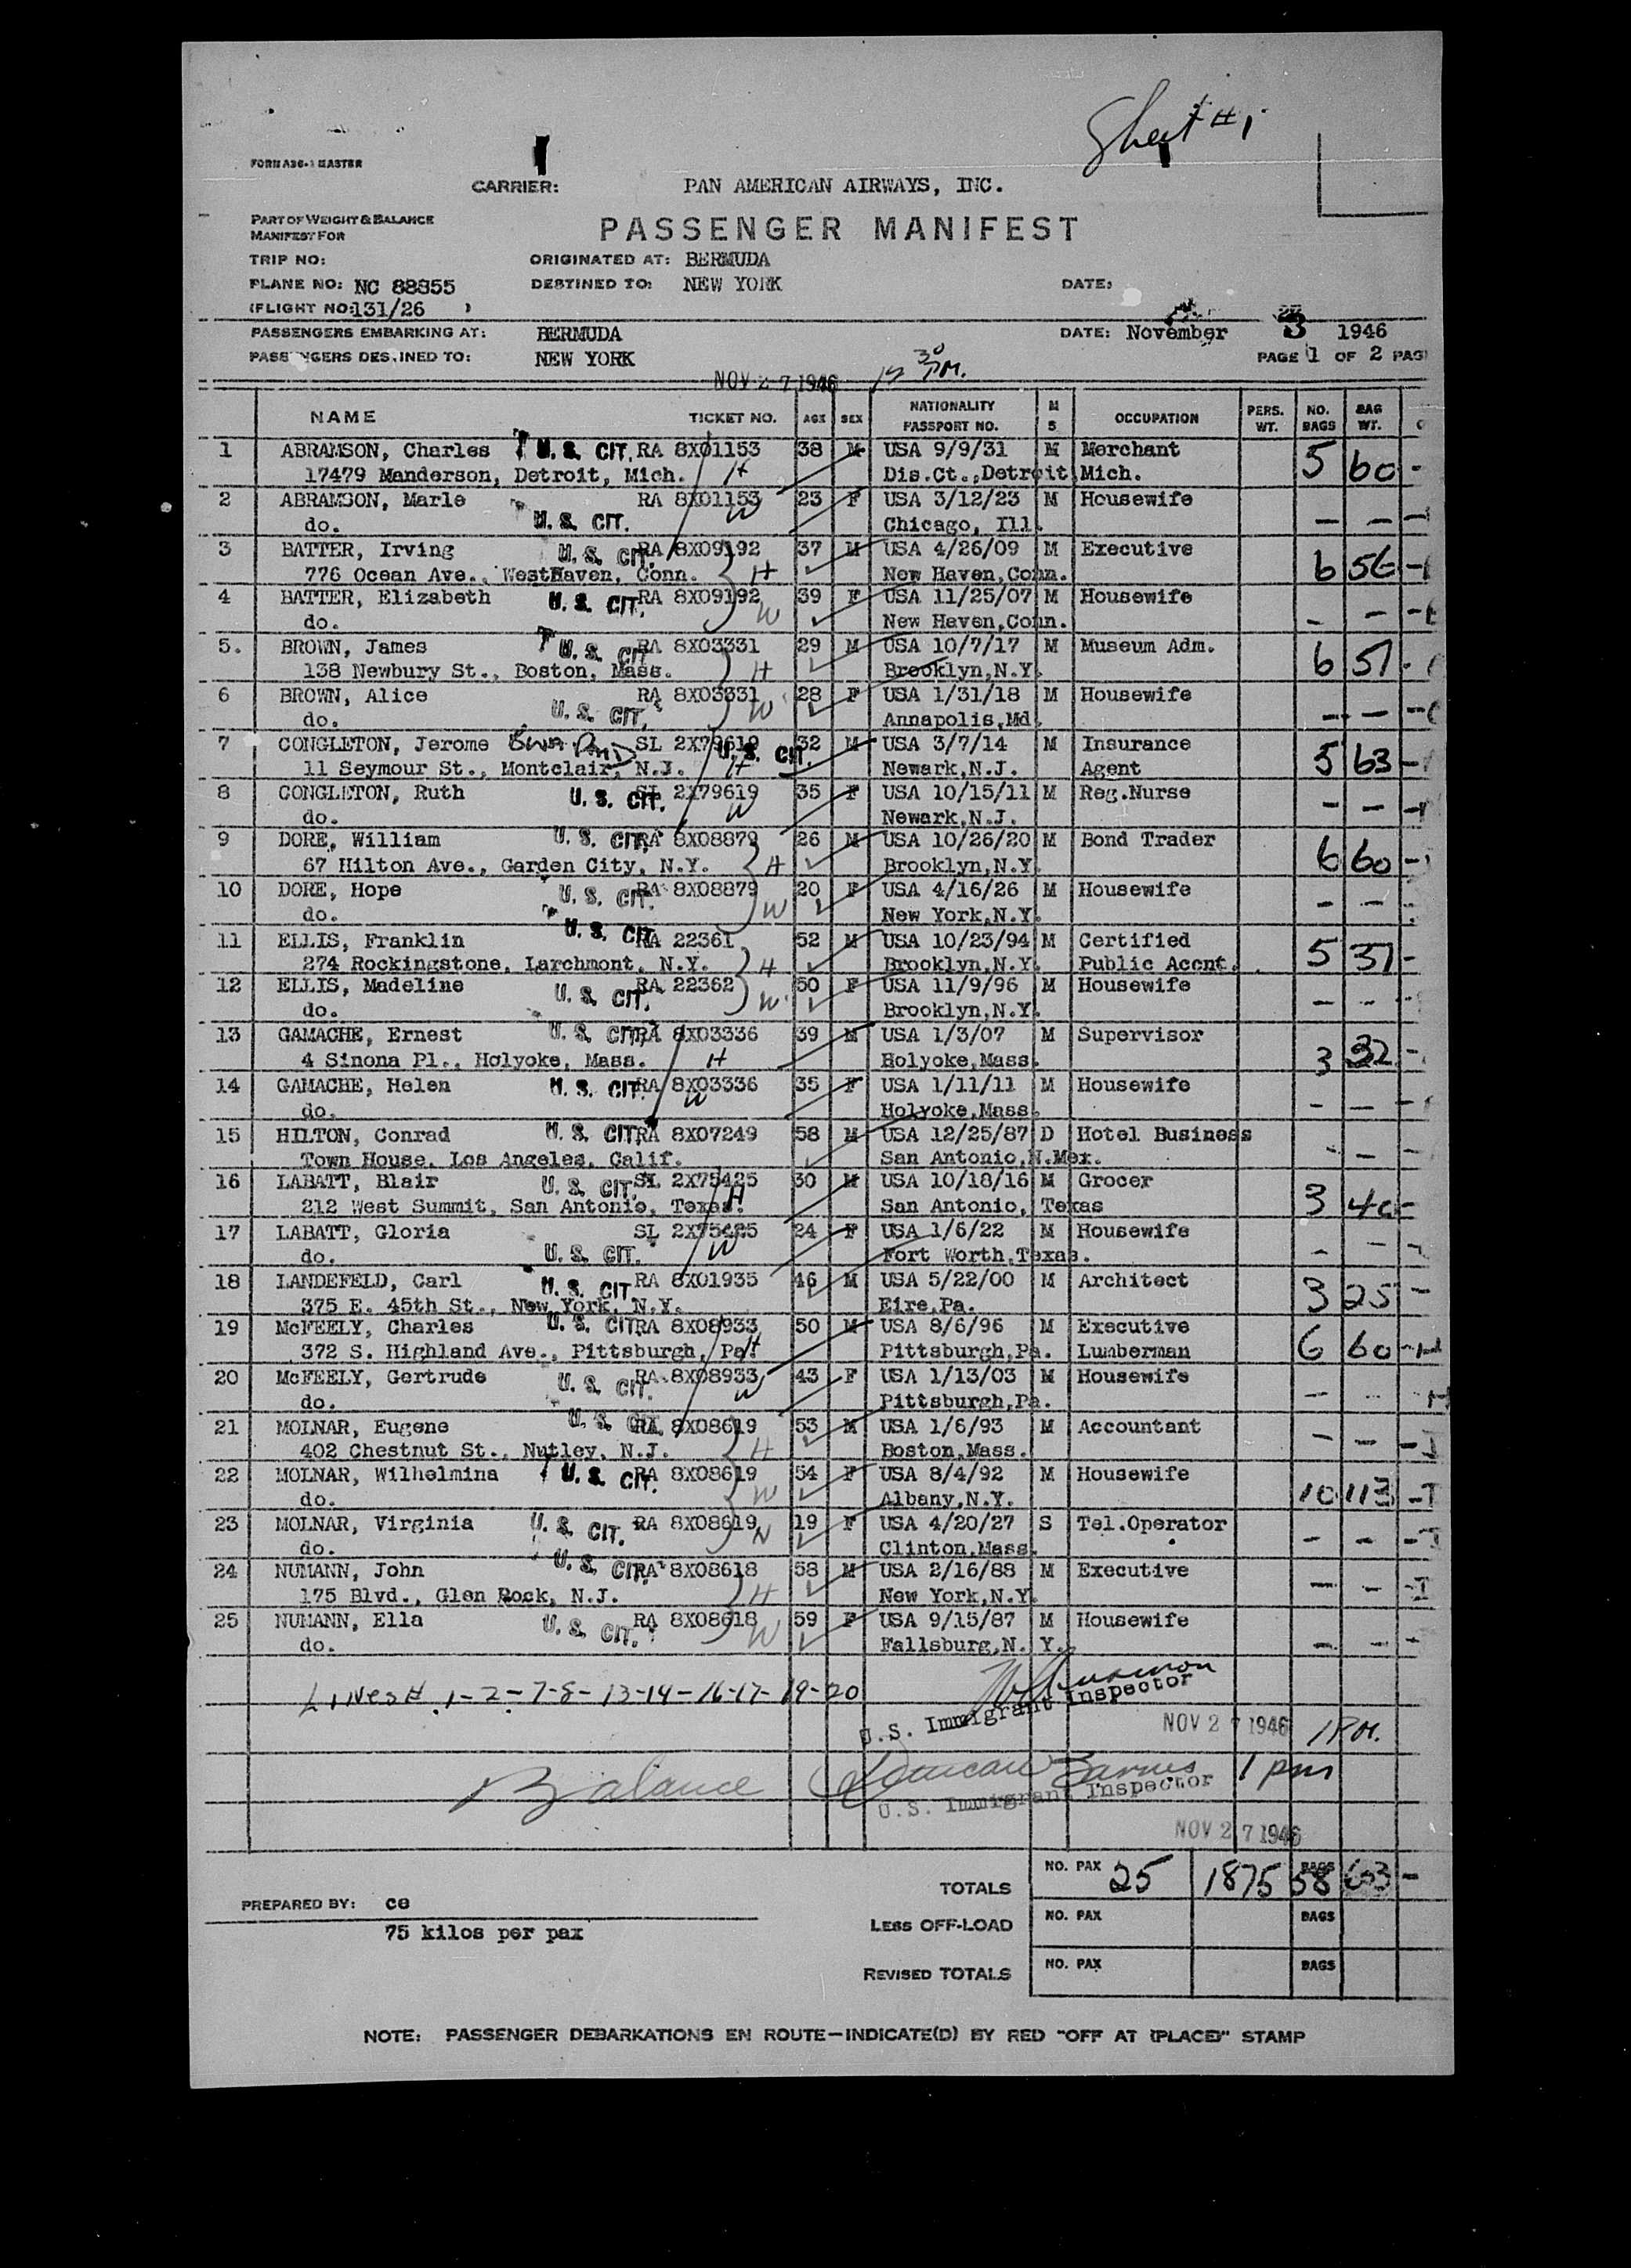 Sheet #1
FORM A36-1 MASTER
CARRIER: PAN AMERICAN AIRWAYS, INC.
PART OF WEIGHT & BALANCE
MANIFEST FOR
PASSENGER MANIFEST
TRIP NO: ORIGINATED AT: BERMUDA
PLANE NO: NC 88855 DESTINED TO: NEW YORK DATE:
(FLIGHT NO: 131/26 )
PASSENGERS EMBARKING AT: BERMUDA DATE: November 1946
PASSENGERS DESTINED TO: NEW YORK PAGE 1 OF 2
NOV 27 1946 12 30 PM.
NAME TICKET NO. AGE SEX NATIONALITY PASSPORT NO. M S OCCUPATION PERS. WT. NO. BAGS BAG WT.
1 ABRAMSON, Charles U. S. CIT. RA 8X01153 38 M USA 9/9/31 M Merchant 5 60 -
17479 Manderson, Detroit, Mich. H Dis.Ct., Detroit, Mich.
2 ABRAMSON, Marle RA 8X01153 23 F USA 3/12/23 M Housewife
do. U. S. CIT. W Chicago, Ill. — — —
3 BATTER, Irving U. S. CIT. RA 8X09192 37 M USA 4/26/09 M Executive 6 56 -
776 Ocean Ave., WestHaven, Conn. H New Haven,Conn.
4 BATTER, Elizabeth U. S. CIT. RA 8X09192 39 F USA 11/25/07 M Housewife
do. W New Haven,Conn. — — —
5. BROWN, James U. S. CIT RA 8X03331 29 M USA 10/7/17 M Museum Adm. 6 51 -
138 Newbury St., Boston, Mass. H Brooklyn,N.Y.
6 BROWN, Alice RA 8X03331 28 F USA 1/31/18 M Housewife
do. U. S. CIT. W Annapolis,Md. — — —
7 CONGLETON, Jerome SL 2X79619 U. S. CIT. 32 M USA 3/7/14 M Insurance 5 63 -
11 Seymour St., Montclair, N.J. H Newark,N.J. Agent
8 CONGLETON, Ruth U. S. CIT. SL 2X79619 35 F USA 10/15/11 M Reg.Nurse
do. W Newark,N.J. — — —
9 DORE, William U. S. CIT. RA 8X08879 26 M USA 10/26/20 M Bond Trader 6 60 -
67 Hilton Ave., Garden City, N.Y. H Brooklyn,N.Y.
10 DORE, Hope U. S. CIT. RA 8X08879 20 F USA 4/16/26 M Housewife
do. W New York,N.Y. — — —
11 ELLIS, Franklin U. S. CIT RA 22361 52 M USA 10/23/94 M Certified 5 37 -
274 Rockingstone, Larchmont, N.Y. H Brooklyn,N.Y. Public Accnt.
12 ELLIS, Madeline U. S. CIT. RA 22362 50 F USA 11/9/96 M Housewife
do. W Brooklyn,N.Y. — — —
13 GAMACHE, Ernest U. S. CIT RA 8X03336 39 M USA 1/3/07 M Supervisor
4 Sinona Pl., Holyoke, Mass. H Holyoke,Mass. 3 32 -
14 GAMACHE, Helen U. S. CIT. RA 8X03336 35 F USA 1/11/11 M Housewife
do. W Holyoke,Mass. — — —
15 HILTON, Conrad U. S. CIT RA 8X07249 58 M USA 12/25/87 D Hotel Business
Town House, Los Angeles, Calif. San Antonio,N.Mex. — — —
16 LABATT, Blair U. S. CIT. SL 2X75425 30 M USA 10/18/16 M Grocer 3 40 -
212 West Summit, San Antonio, Texas. H San Antonio, Texas
17 LABATT, Gloria SL 2X75425 24 F USA 1/6/22 M Housewife
do. U. S. CIT. W Fort Worth,Texas. — — —
18 LANDEFELD, Carl U. S. CIT RA 8X01935 46 M USA 5/22/00 M Architect 3 25 -
375 E. 45th St., New York, N.Y. Eire,Pa.
19 McFEELY, Charles U. S. CIT RA 8X08933 50 M USA 8/6/96 M Executive 6 60 -
372 S. Highland Ave., Pittsburgh, Pa. H Pittsburgh,Pa. Lumberman
20 McFEELY, Gertrude U. S. CIT. RA 8X08933 43 F USA 1/13/03 M Housewife
do. W Pittsburgh,Pa. — — —
21 MOLNAR, Eugene U. S. CIT. RA 8X08619 53 M USA 1/6/93 M Accountant
402 Chestnut St., Nutley, N.J. H Boston,Mass. — — —
22 MOLNAR, Wilhelmina U. S. CIT. RA 8X08619 54 F USA 8/4/92 M Housewife
do. W Albany,N.Y. 10 113 -
23 MOLNAR, Virginia U. S. CIT. RA 8X08619 19 F USA 4/20/27 S Tel.Operator
do. Clinton,Mass. — — —
24 NUMANN, John U. S. CIT. RA 8X08618 58 M USA 2/16/88 M Executive
175 Blvd., Glen Rock, N.J. H New York,N.Y. — — —
25 NUMANN, Ella U. S. CIT. RA 8X08618 59 F USA 9/15/87 M Housewife
do. W Fallsburg,N. Y. — — —
Lines # 1-2-7-8-13-14-16-17-19-20
U.S. Immigrant Inspector
NOV 27 1946 1 PM.
Balance Duncan Barnes 1 pm
U.S. Immigrant Inspector
NOV 27 1946
TOTALS NO. PAX 25 1875 BAGS 58 653 -
PREPARED BY: ce
LESS OFF-LOAD NO. PAX BAGS
75 kilos per pax
REVISED TOTALS NO. PAX BAGS
NOTE: PASSENGER DEBARKATIONS EN ROUTE—INDICATE(D) BY RED "OFF AT (PLACE)" STAMP